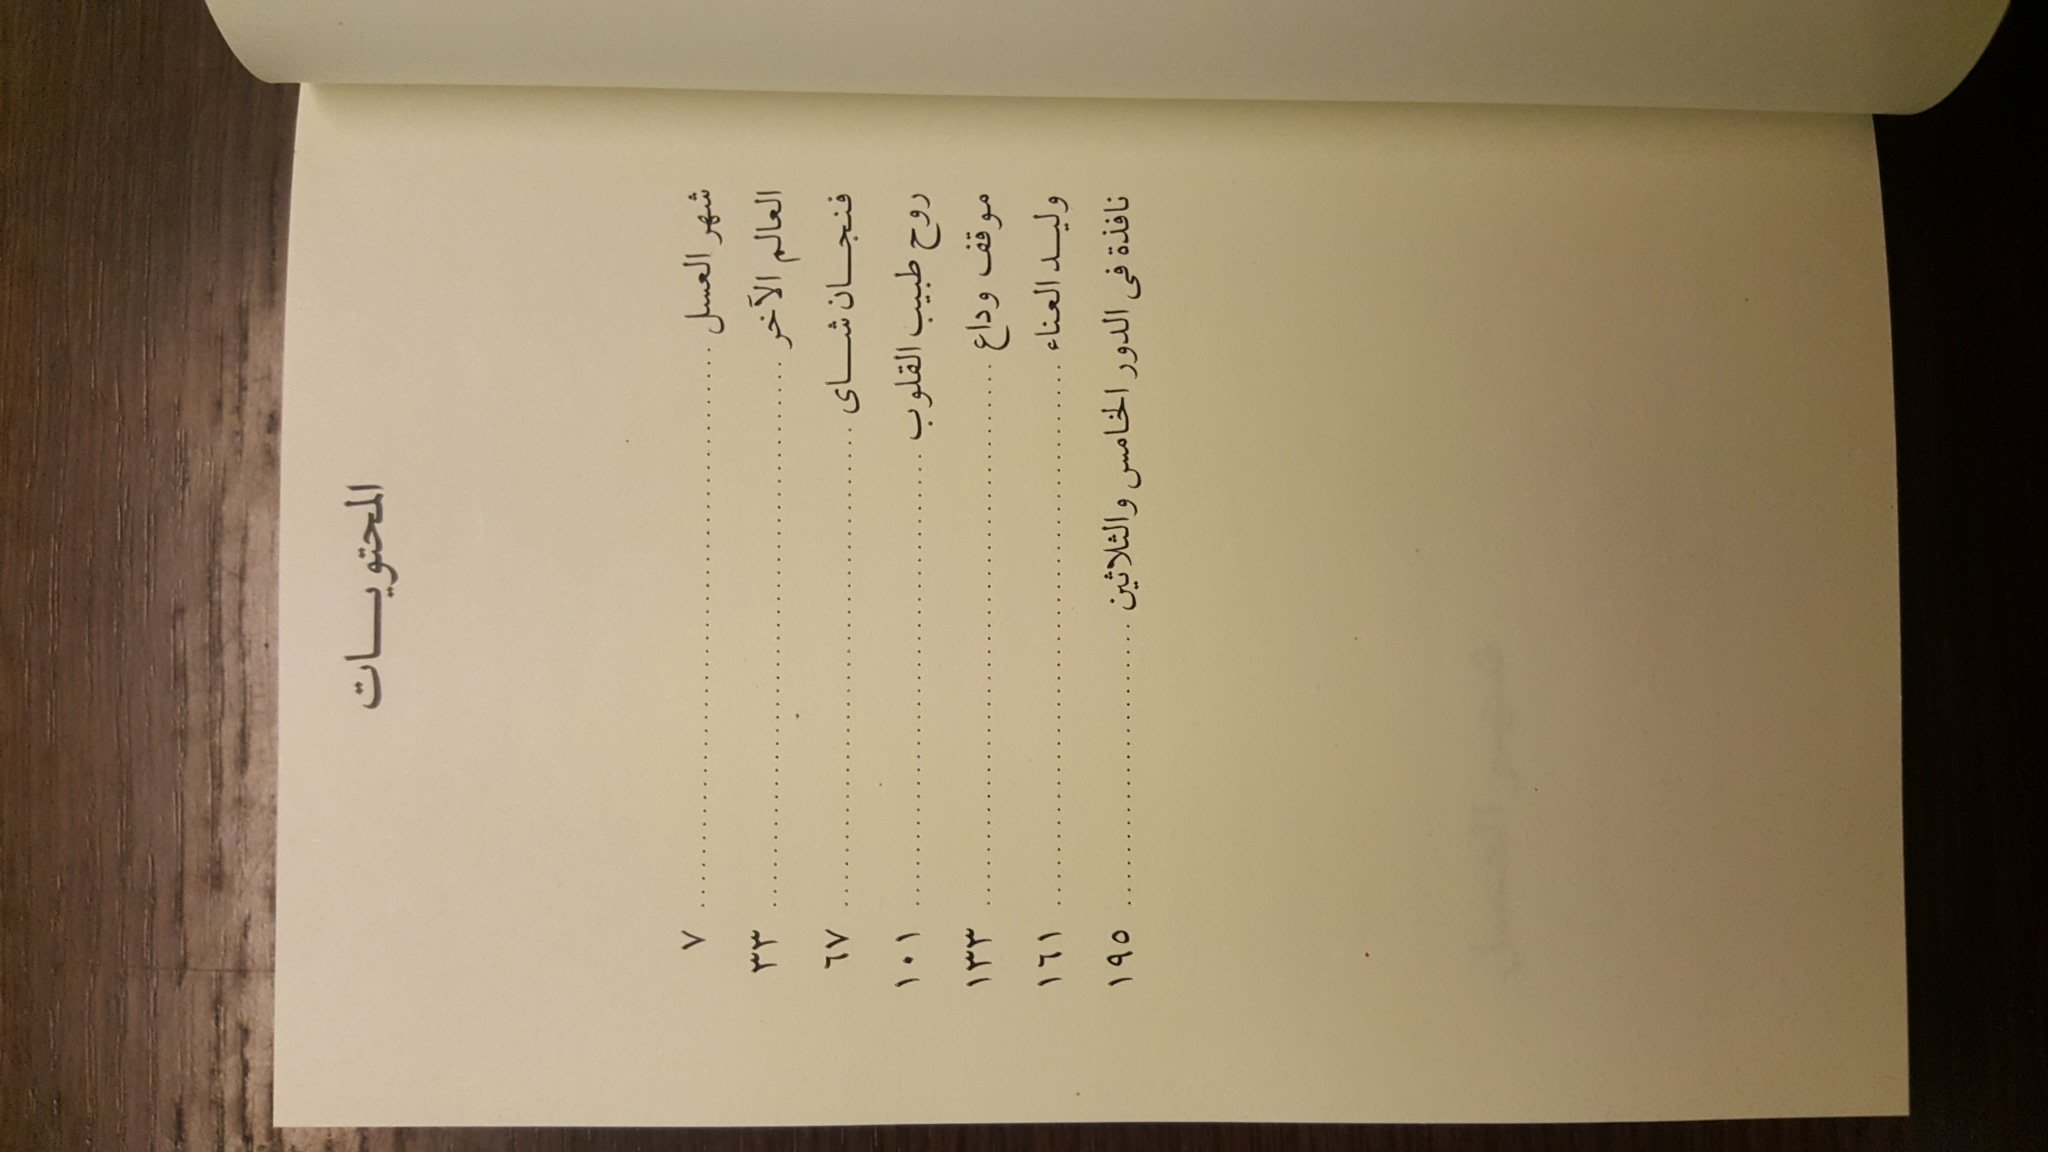 المحتويات
شهر العسل ........ ٧
العالم الآخر ........ ٣٣
فنجان شاى ........ ٦٧
روح طبيب القلوب ........ ١٠١
موقف وداع ........ ١٣٣
وليد العناء ........ ١٦١
نافذة فى الدور الخامس والثلاثين ........ ١٩٥